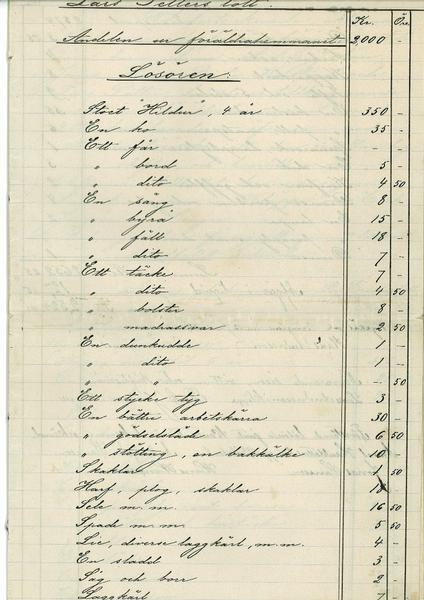 Lars Pellers lott.
Kr. Öre
Andelen ur föräldrahemmanet. 2,000 -
Lösören:
Stoet "Hildur", 4 år 350 -
En ko 35 -
Ett får - -
" bord 5 -
" dito 4 50
En säng 8 -
" byrå 15 -
" fäll 18 -
" dito 7 -
Ett täcke 7 -
" dito 4 50
" bolster 8 -
" madrassvar 2 50
En dunkudde 1 -
" dito 1 -
" " - 50
Ett stycke tyg 3 -
En bättre arbetskärra 30 -
" gödselsläde 6 50
" stötting, en bakkälke 10 -
Skaklar 1 50
Harf, plog, skaklar
Sele m.m. 16 50
Spade m.m. 5 50
Lie, diverse laggkärl, m.m. 4 -
En stadd 3 -
Såg och borr 2 -
Laggkärl 7 -